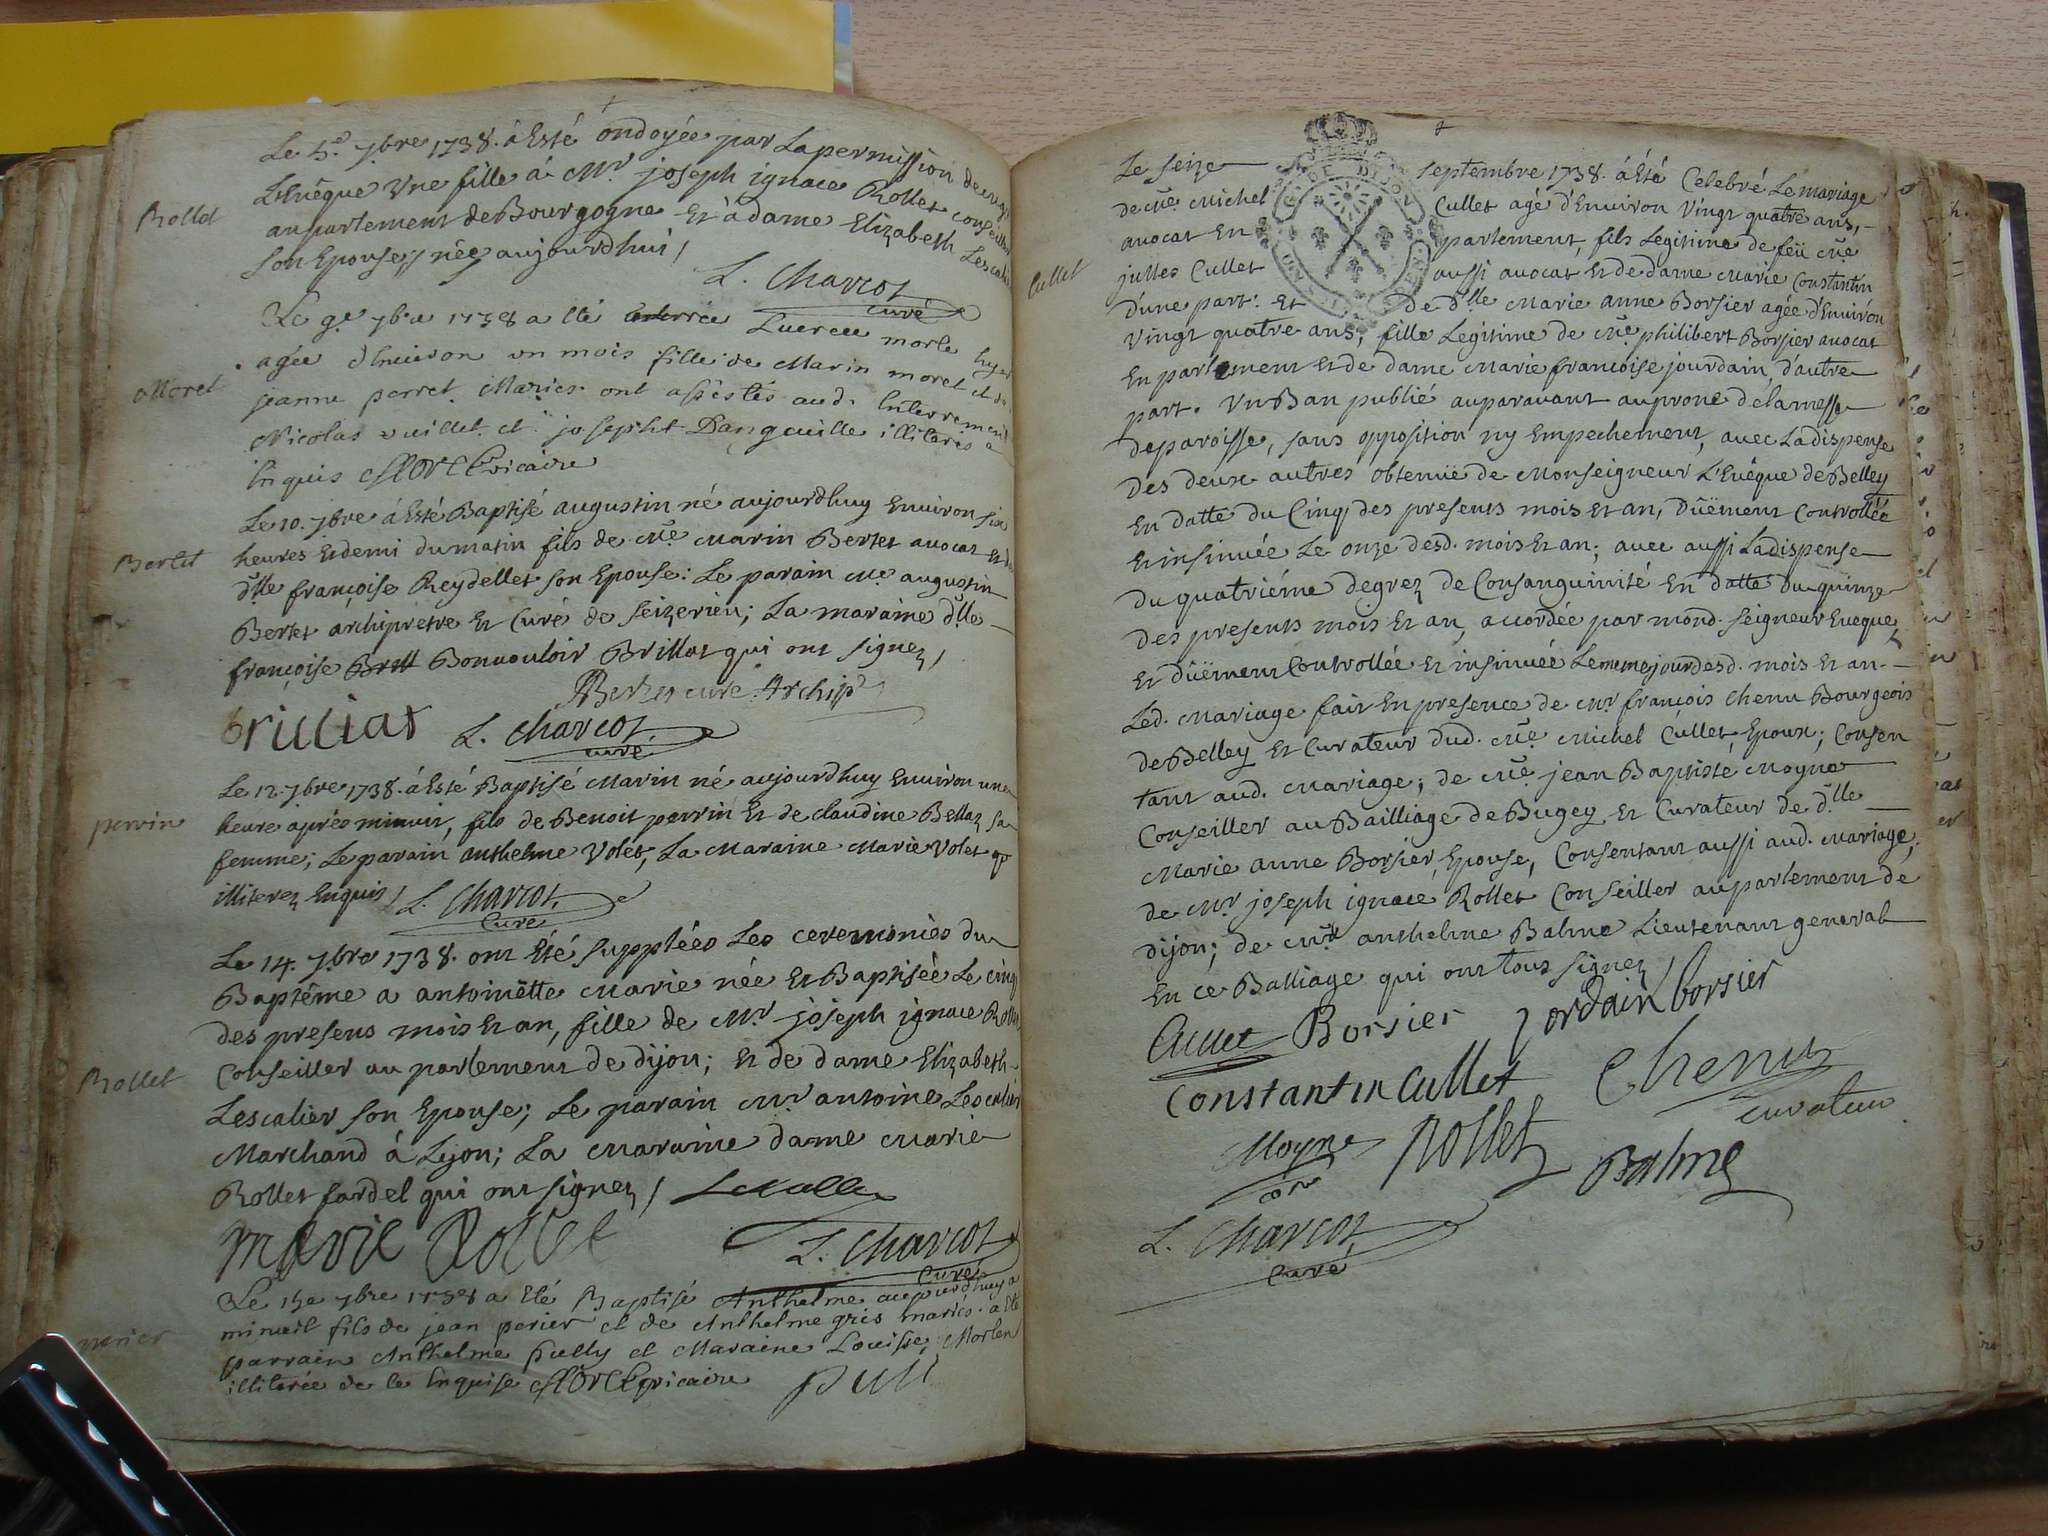 Le 5e. 7bre 1738. à Esté ondoyée par La permission de
L'Evêque Une fille à Mr. joseph ignace Rollet conseiller
Rollet
au parlement de Bourgogne Et à dame Elizabeth Lescalier
son Epouse, née aujourdhui /
L. Charcot
curé
Le 9e 7bre 1738 a été Lucrece morte hyer
agée d'heuiron un mois fille de Marin moret et de
Moret
jeanne perret Mariés ont assistés aud. Interrement
Nicolas vuillet et josepht Dangeuille illiterés
Enquis Moret vicaire
Le 10. 7bre à Esté Baptisé augustin né aujourdhuy Environ six
Bertet
heures et demi du matin fils de Me. Marin Bertet avocat et de
dlle françoise Reydellet son Epouse: Le parain Me. augustin
Bertet archipretre Et Curé de Seizerieu; La maraine dlle
françoise Bonvouloir Brillat qui ont signez /
Bertet cure Archip
briliat L. Charcot
curé
Le 12. 7bre 1738. à Esté Baptisé Marin né aujourdhuy Environ une
perrin
heure aprés minuit, fils de Benoit perrin Et de claudine Bellaz sa
femme; Le parain anthelme Volet, La Maraine Marie Volet
illiterez Enquis / L. Charcot
Curé
Le 14. 7bre 1738. ont Eté suppléés Les ceremonies du
Baptême a antoinëtte Marie née Et Baptisée Le cinq
des presens mois Et an, fille de Mr. joseph ignace Rollet
Rollet
Conseiller au parlement de dijon; Et de dame Elizabeth
Lescalier son Epouse; Le parain Mr. antoine Lescalier
Marchand à Lyon; La Maraine dame Marie
Rollet fardel qui ont signez /
Marie Rollet
L. Charcot
Curé
Le 15e 7bre 1738 a Eté Baptisé Anthelme aujourdhuy a
perier
minuit fils de jean perier et de Anthelme gris mariés. a Eté
parrain Anthelme pully et Maraine Louise Morten
illiterée de ce Enquise Moret vicaire
pulli
Le seize septembre 1738. à Eté Celebré Le mariage
de Me. Michel Cullet agé d'Environ Vingt quatre ans,
avocat En parlement, fils Legitime de feü Me.
Cullet
julles Cullet aussi avocat Et de dame Marie Constantin
d'une part. Et de dlle Marie anne Borsier agée d'Environ
Vingt quatre ans, fille Legitime de Me. philibert Borsier avocat
En parlement Et de dame Marie françoise jourdain, d'autre
part. Un Ban publié auparavant au prone de la messe
de paroisse, sans opposition ny Empechement, avec La dispense
des deux autres obtenüe de Monseigneur L'Evêque de Belley
En datte du Cinq des presents mois Et an, Düement Controllée
Et insinuée Le onze desd. mois Et an; avec aussi La dispense
du quatriéme degrez de Consanguinité En datte du quinze
des presents mois Et an, accordée par mond. seigneur Eveque,
Et düement Controllée Et insinuée Le meme jour desd. mois Et an.
Led. Mariage fait En presence de Mr. françois Chenu Bourgeois
de Belley Et Curateur dud. Me. Michel Cullet, Epoux, Consen
tant aud. Mariage; de Me. jean Baptiste Moyne
Conseiller au Bailliage de Bugey, Et Curateur de dlle
Marie anne Borsier, Epouse, Consentant aussi aud. Mariage;
de Mr. joseph ignace Rollet Conseiller au parlement de
dijon; de Mr. anthelme Balme Lieutenant general
En ce Balliage qui ont tous signez /
Cullet Borsier jordain borsier
Constantin Cullet Chenu
curateur
Moyne Rollet Balme
L. Charcot
Curé